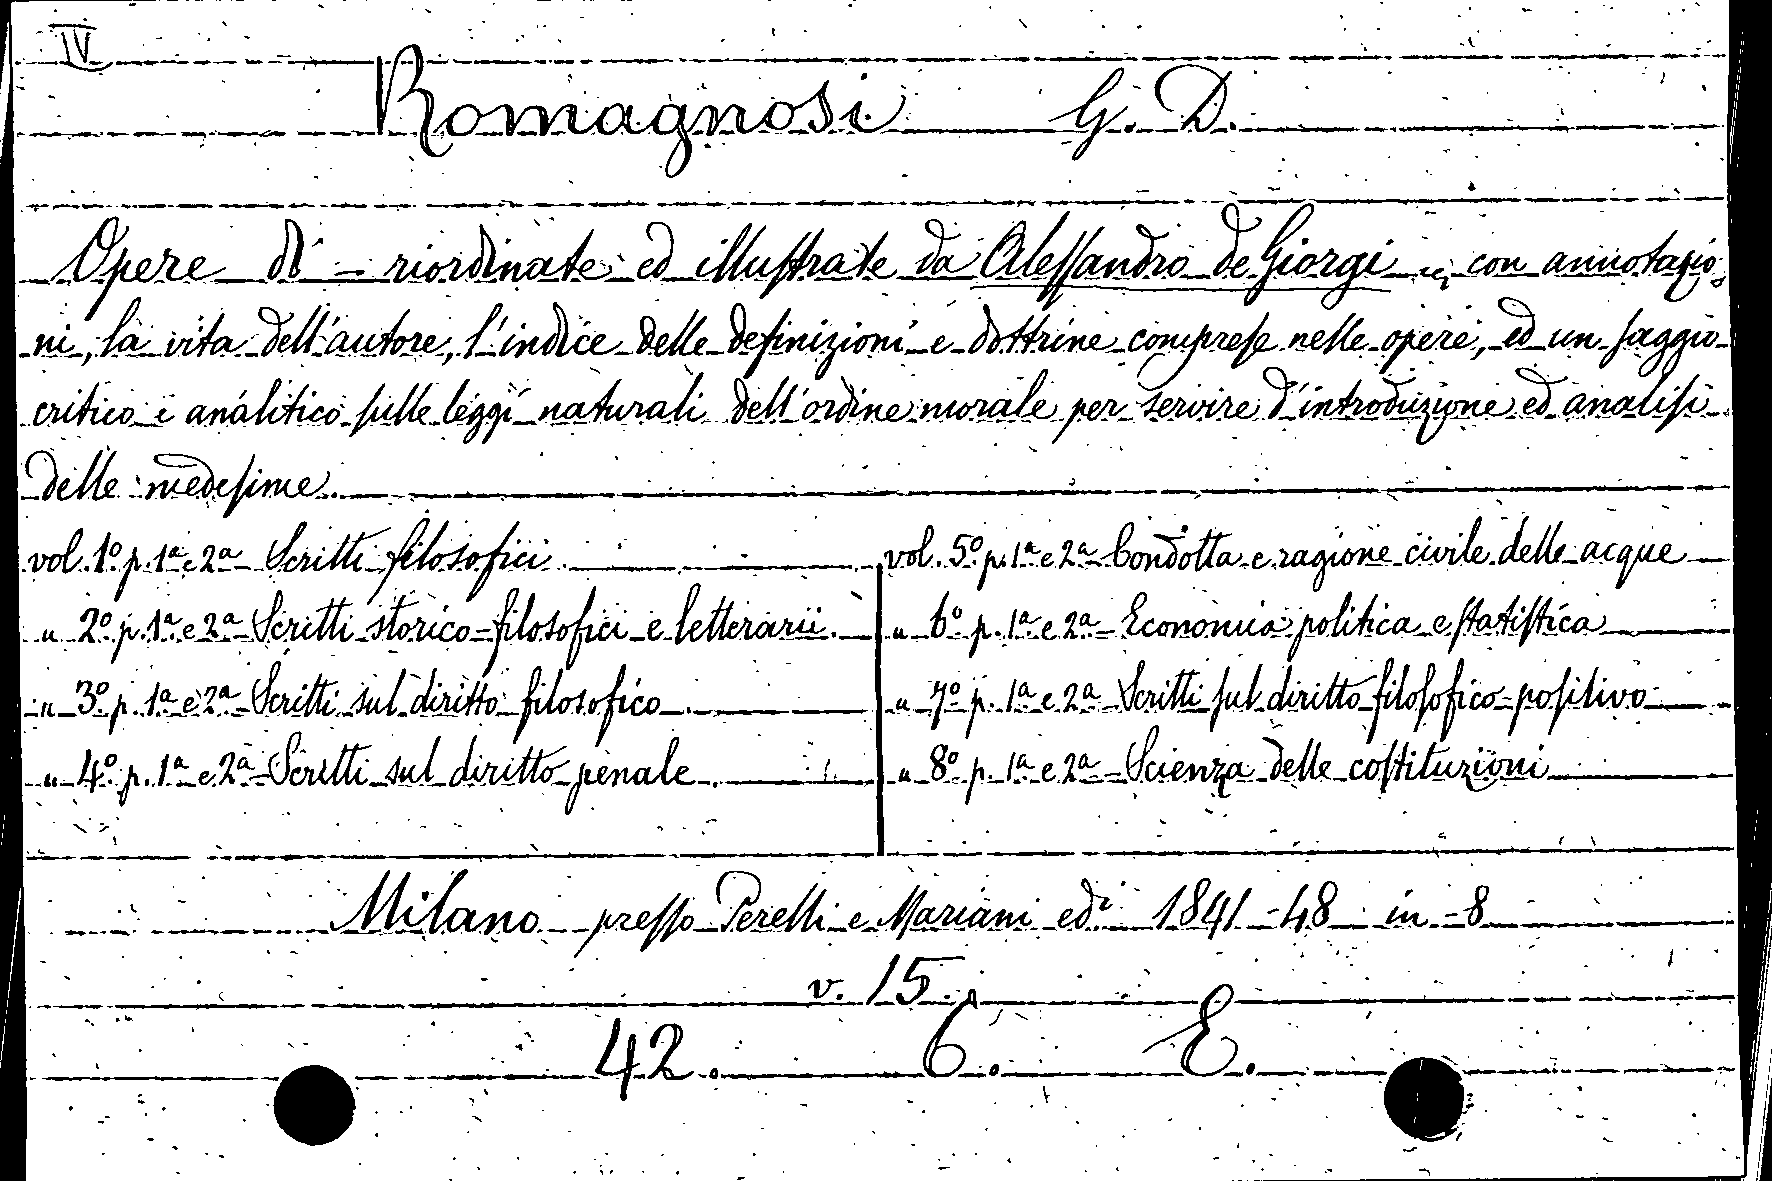 IV
Romagnosi G. D.
Opere di – riordinate ed illustrate da Alessandro de Giorgi „ con annotazio-
ni, la vita dell'autore, l'indice delle definizioni e dottrine comprese nelle opere, ed un saggio
critico e analitico sulle leggi naturali dell'ordine morale per servire d'introduzione ed analisi
delle medesime.
vol. 1º p. 1ª e 2ª Scritti filosofici
„ 2º p. 1ª e 2ª Scritti storico-filosofici e letterarii.
„ 3º p. 1ª e 2ª Scritti sul diritto filosofico
„ 4º p. 1ª e 2ª Scritti sul diritto penale.
vol. 5º p. 1ª e 2ª Condotta e ragione civile delle acque
„ 6º p. 1ª e 2ª Economia politica e statistica
„ 7º p. 1ª e 2ª Scritti sul diritto filosofico-positivo
„ 8º p. 1ª e 2ª Scienza delle costituzioni
Milano presso Perelli e Mariani edi 1841-48 in-8
v. 15.
42. C. E.